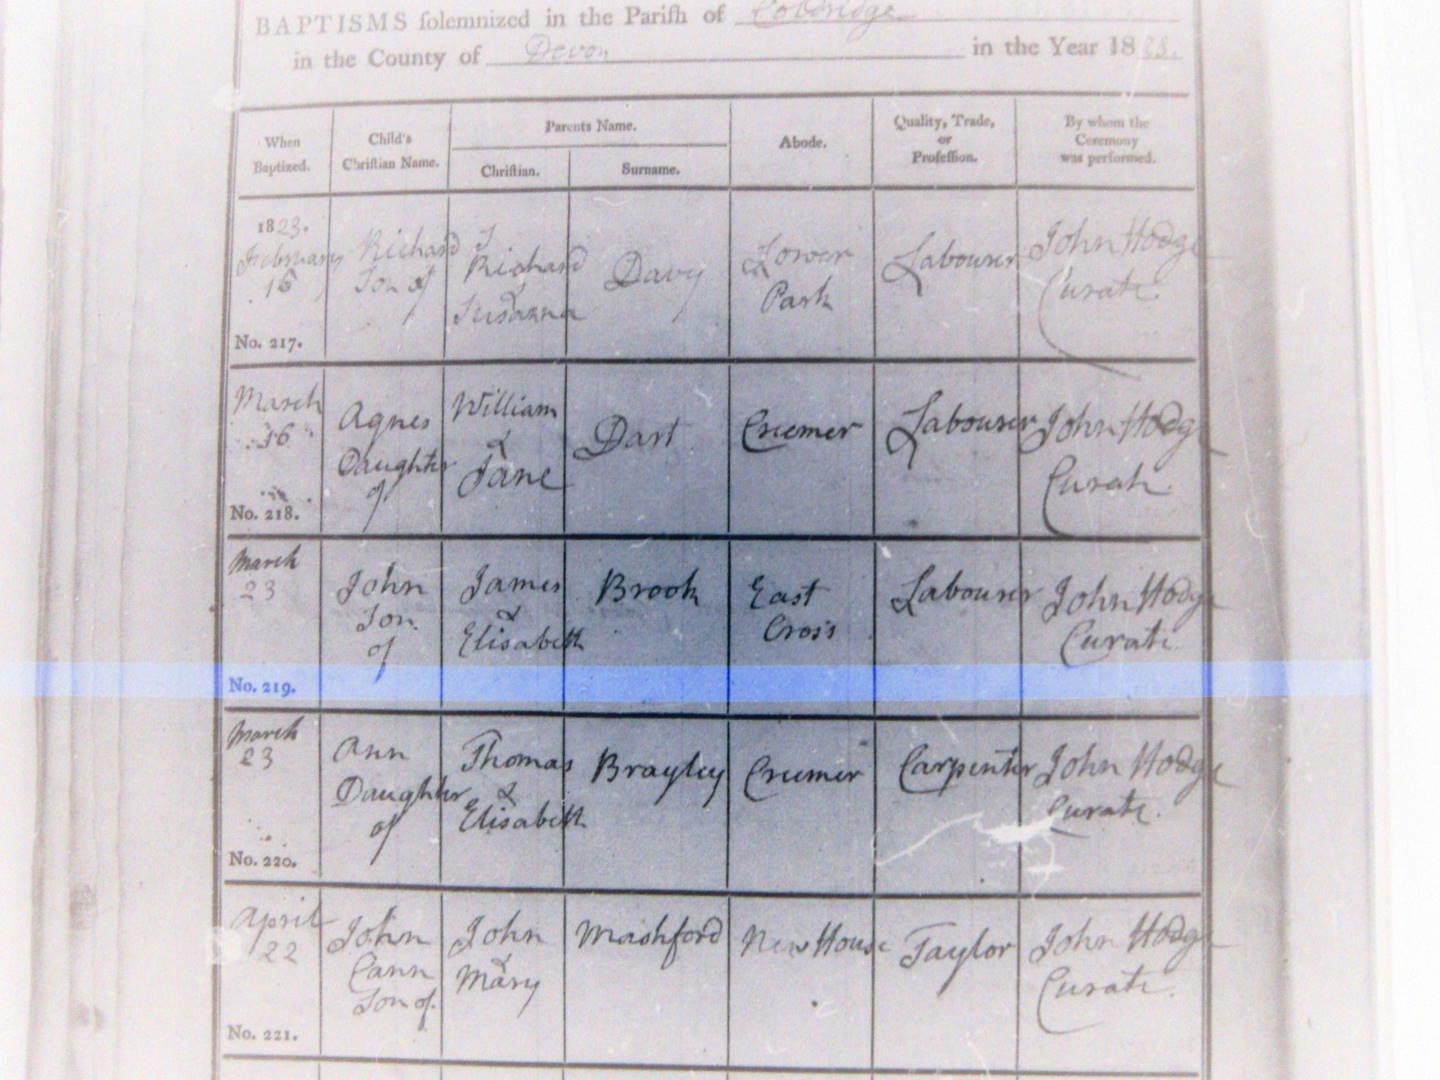 BAPTISMS solemnized in the Parish of Coldridge
in the County of Devon in the Year 18
When Baptized.
Child's Christian Name.
Parents Name.
Christian.
Surname.
Abode.
Quality, Trade, or Profession.
By whom the Ceremony was performed.
1823.
February
16
No. 217.
Richard
Son of
Richard
&
Susanna
Davy
Lower
Park
Labourer
John Hodge
Curate.
March
16
No. 218.
Agnes
Daughter
of
William
&
Jane
Dart
Creemer
Labourer
John Hodge
Curate.
March
23
No. 219.
John
Son
of
James
&
Elisabeth
Brook
East
Cross
Labourer
John Hodge
Curate
March
23
No. 220.
Ann
Daughter
of
Thomas
&
Elisabeth
Brayley
Creemer
Carpenter
John Hodge
Curate.
April
22
No. 221.
John
Cann
Son of
John
&
Mary
Mashford
New House
Taylor
John Hodge
Curate.